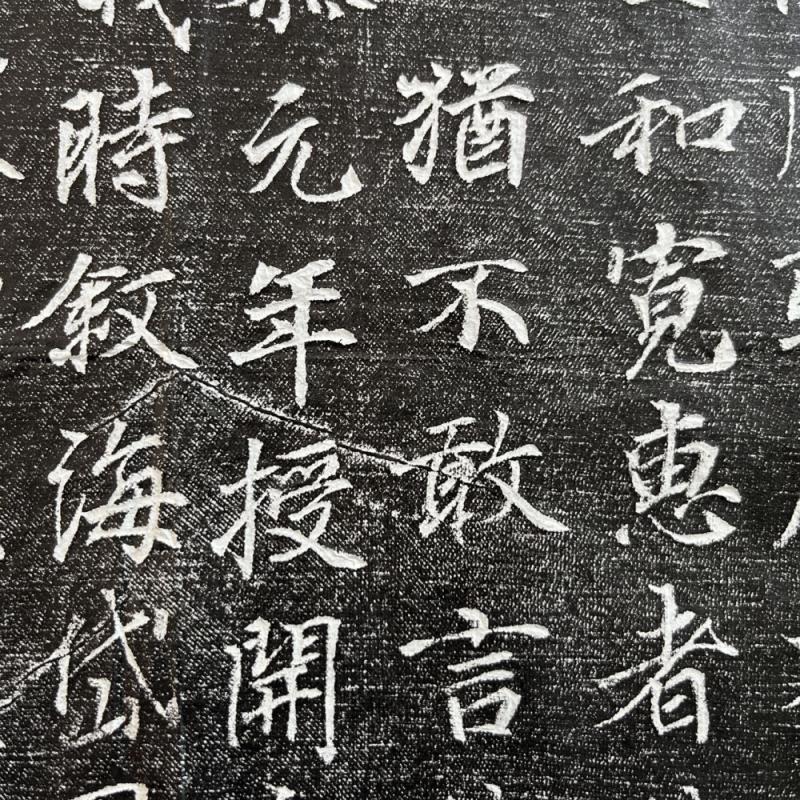 和寬惠者
猶不敢言
元年授開
時敘海岱